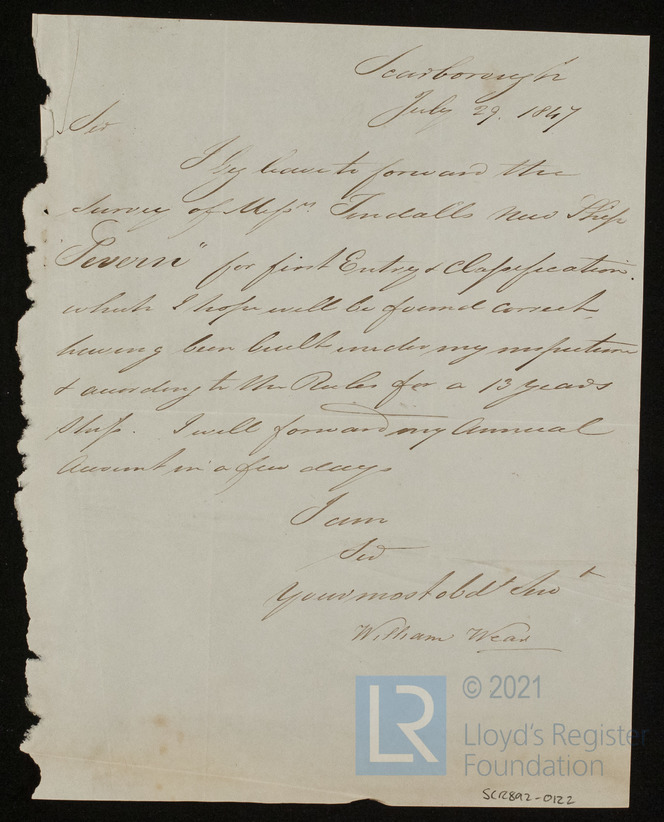 Scarborough
July 29. 1847
Sir
I beg leave to forward the
survey of Messrs. Tindalls new Ship
"Severn" for first Entry & Classification.
which I hope will be found correct,
having been built under my inspection
& according to the Rules for a 13 years
Ship. I will forward my Annual
Account in a few days
I am
Sir
Your most obdt Servt
William Wear
LR
© 2021
Lloyd's Register
Foundation
SCR892-0122